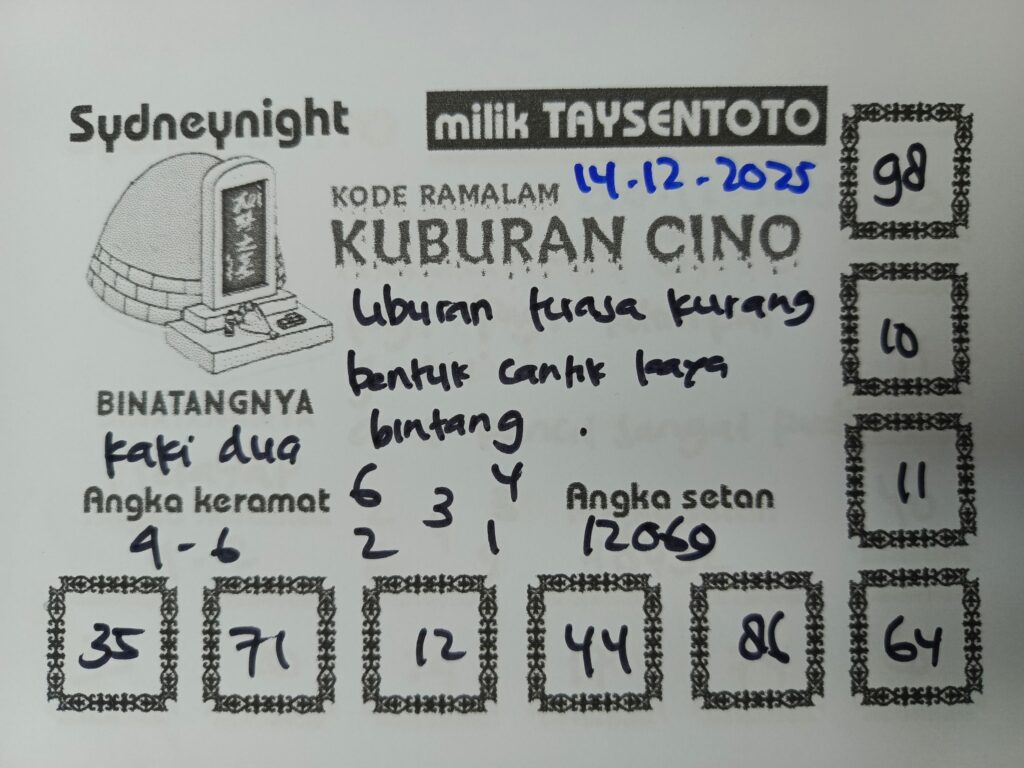 Sydneynight
milik TAYSENTOTO
14.12.2025
KODE RAMALAM
KUBURAN CINO
uburan terasa kurang
bentuk cantik kaya
bintang .
BINATANGNYA
kaki dua
Angka keramat
9-6
6 4
3
2 1
Angka setan
12069
98
10
11
35 71 12 44 86 64